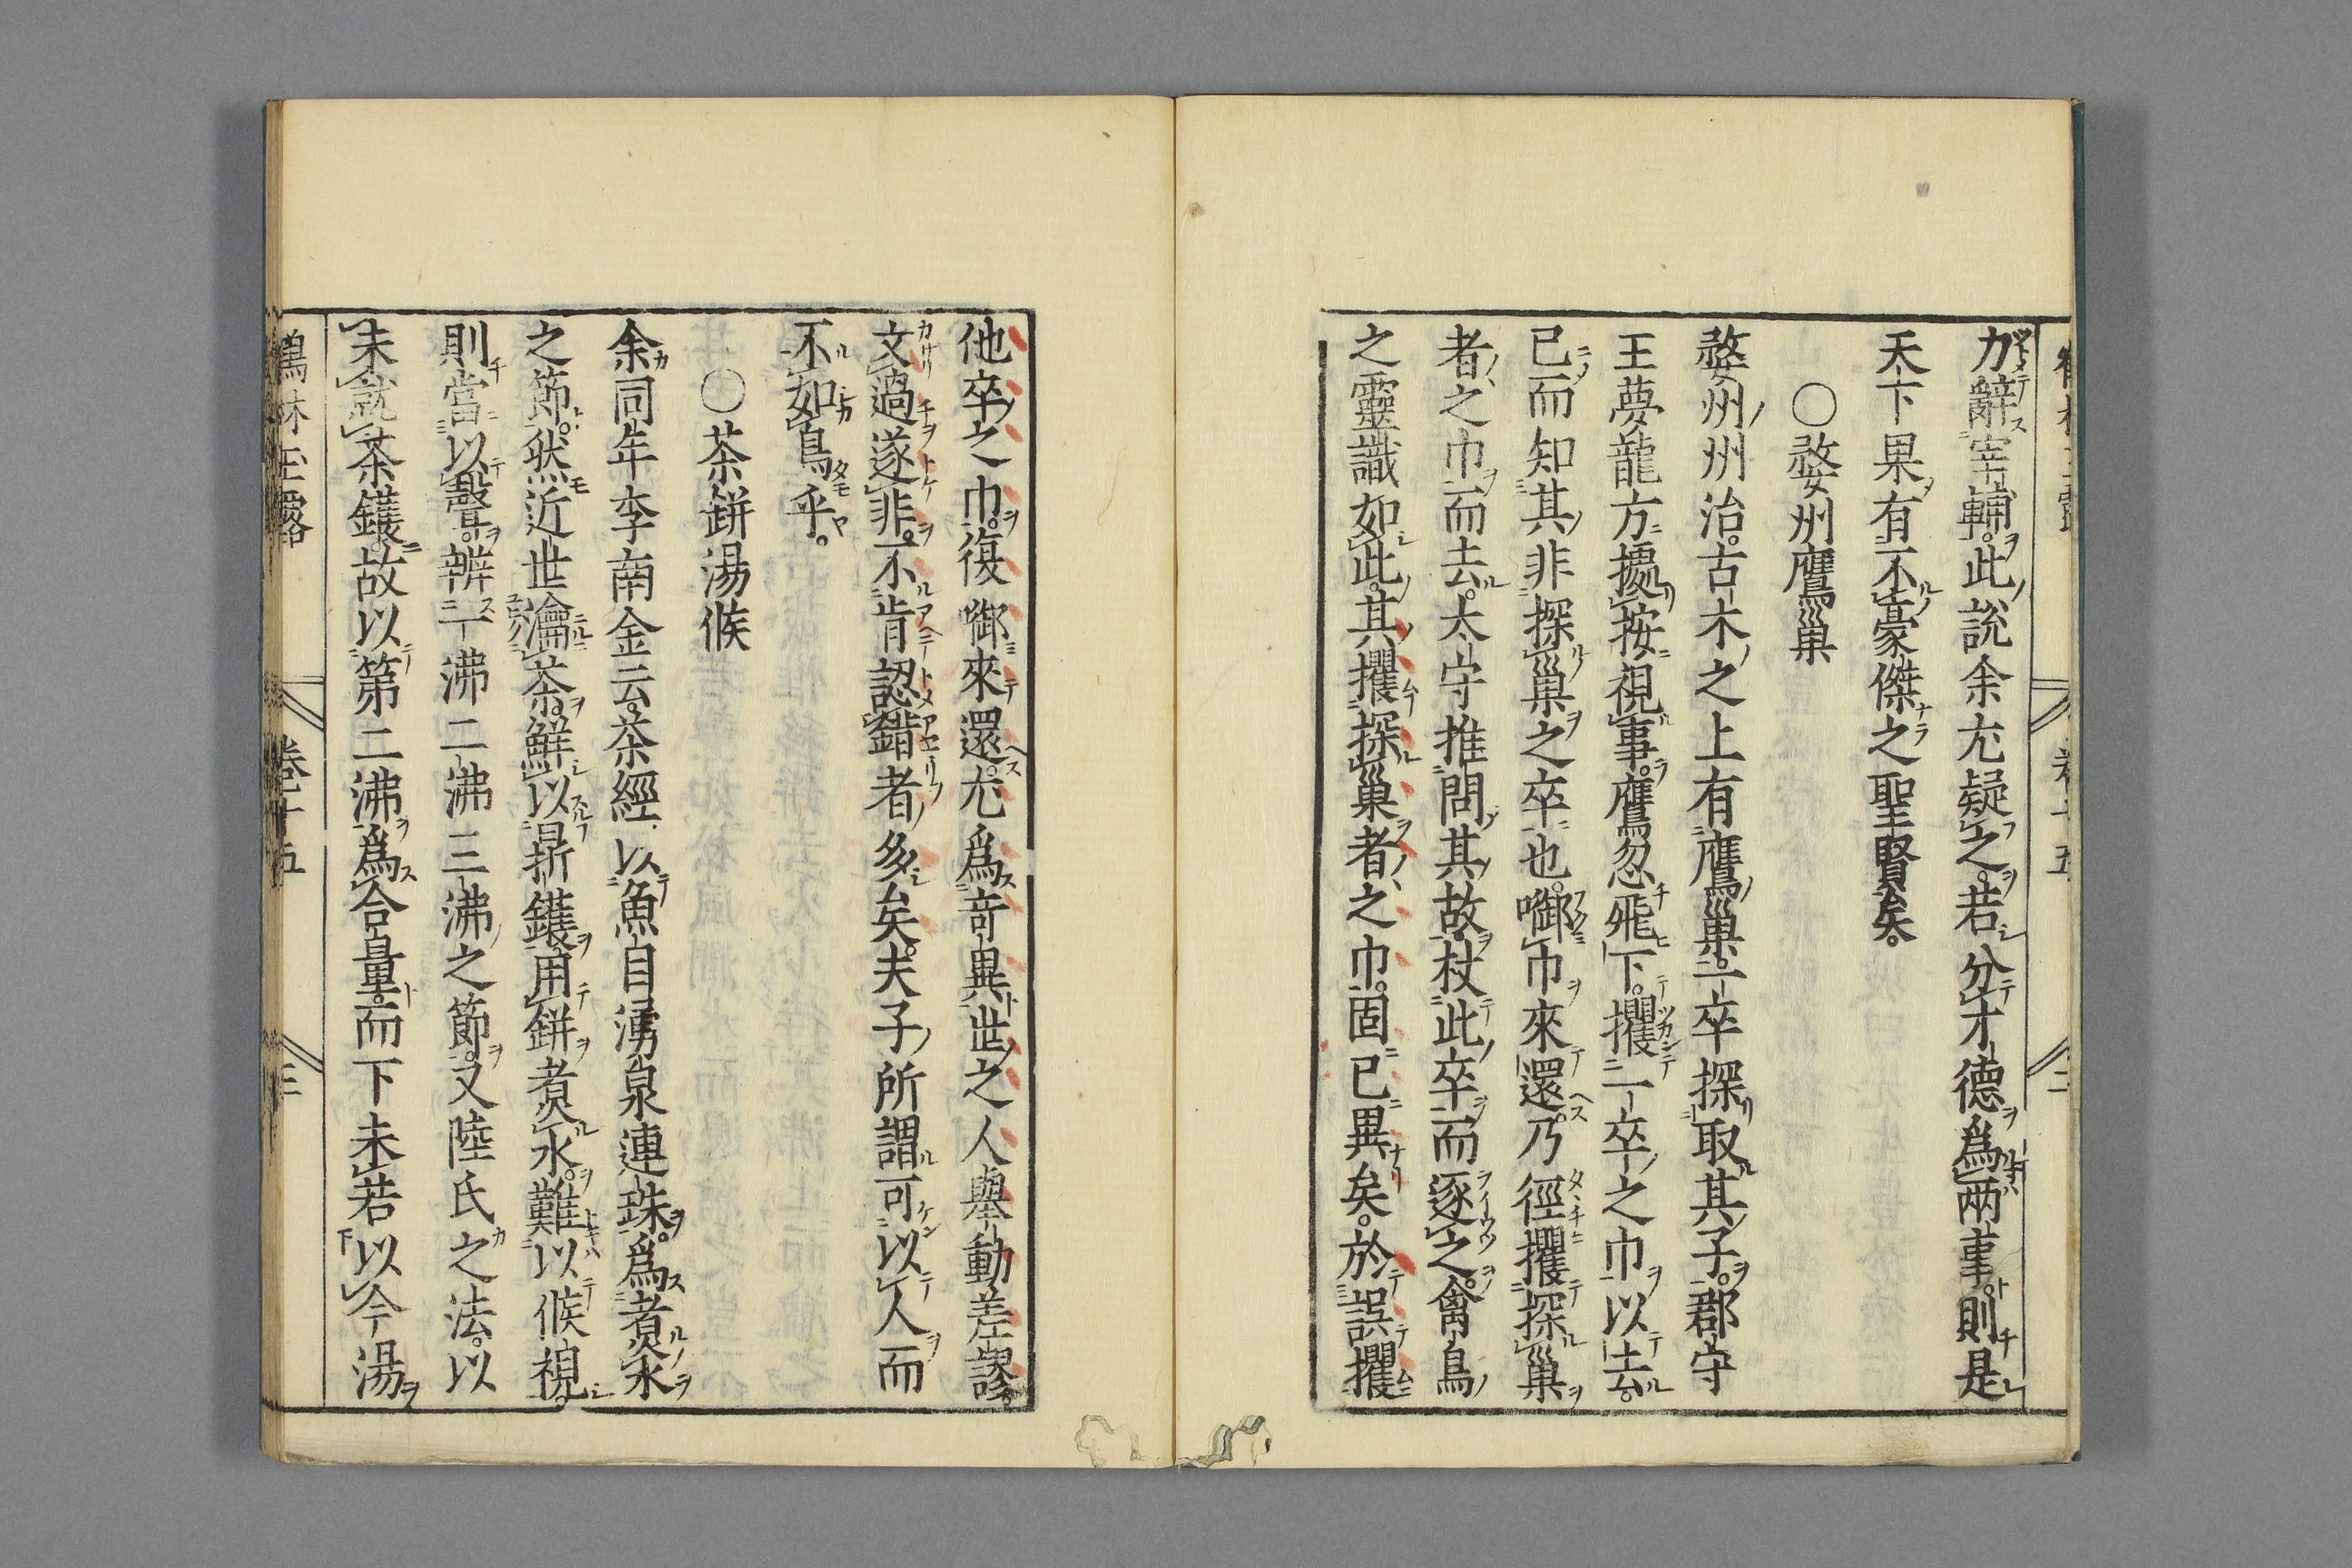 力辭宰輔。此說余尤疑之。若分才德爲兩事。則是
天下果有不豪傑之聖賢矣。
○婺州鷹巢
婺州州治。古木之上有鷹巢。一卒探取其子。郡守
王夢龍方據按視事。鷹忽飛下。攫一卒之巾以去。
已而知其非探巢之卒也。啣巾來還。乃徑攫探巢
者之巾而去。太守推問其故。杖此卒而逐之。禽鳥
之靈識如此。其攫探巢者之巾。固已異矣。於誤攫
他卒之巾。復啣來還。尤爲竒異。世之人舉動差謬。
文過遂非。不肯認錯者多矣。夫子所謂可以人而
不如鳥乎。
○茶缾湯候
余同年李南金云。茶經以魚自湧泉連珠。爲煮水
之節。然近世瀹茶。鮮以鼎鑊。用缾煮水。難以候視。
則當以聲。辨一沸二沸三沸之節。又陸氏之法。以
未就茶鑊。故以第二沸爲合量。而下未若以今湯
鶴林玉露 卷十五 三